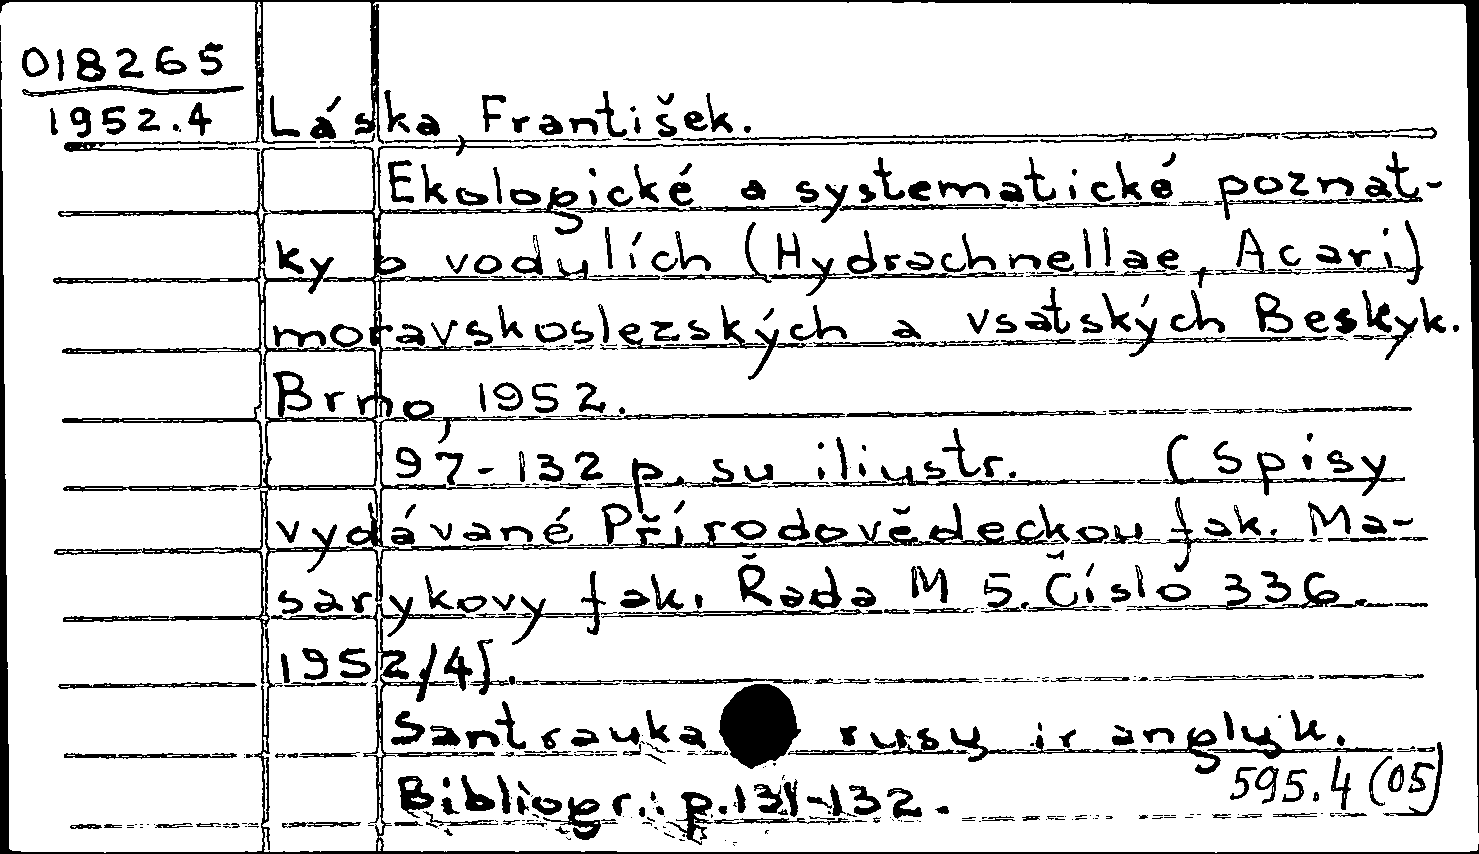 018265
1952.4 Láska, František.
Ekologické a systematické poznat-
ky o vodulích (Hydrachnellae, Acari)
moravskoslezských a vsatských Beskyk.
Brno, 1952.
97-132 p. su iliustr. (Spisy
vydávané Přírodovědeckou fak. Ma-
sarykovy fak. Řada M 5. Číslo 336.
1952/4).
Santrauka rusų ir anglų k.
Bibliogr.: p.131-132.
595.4(05)